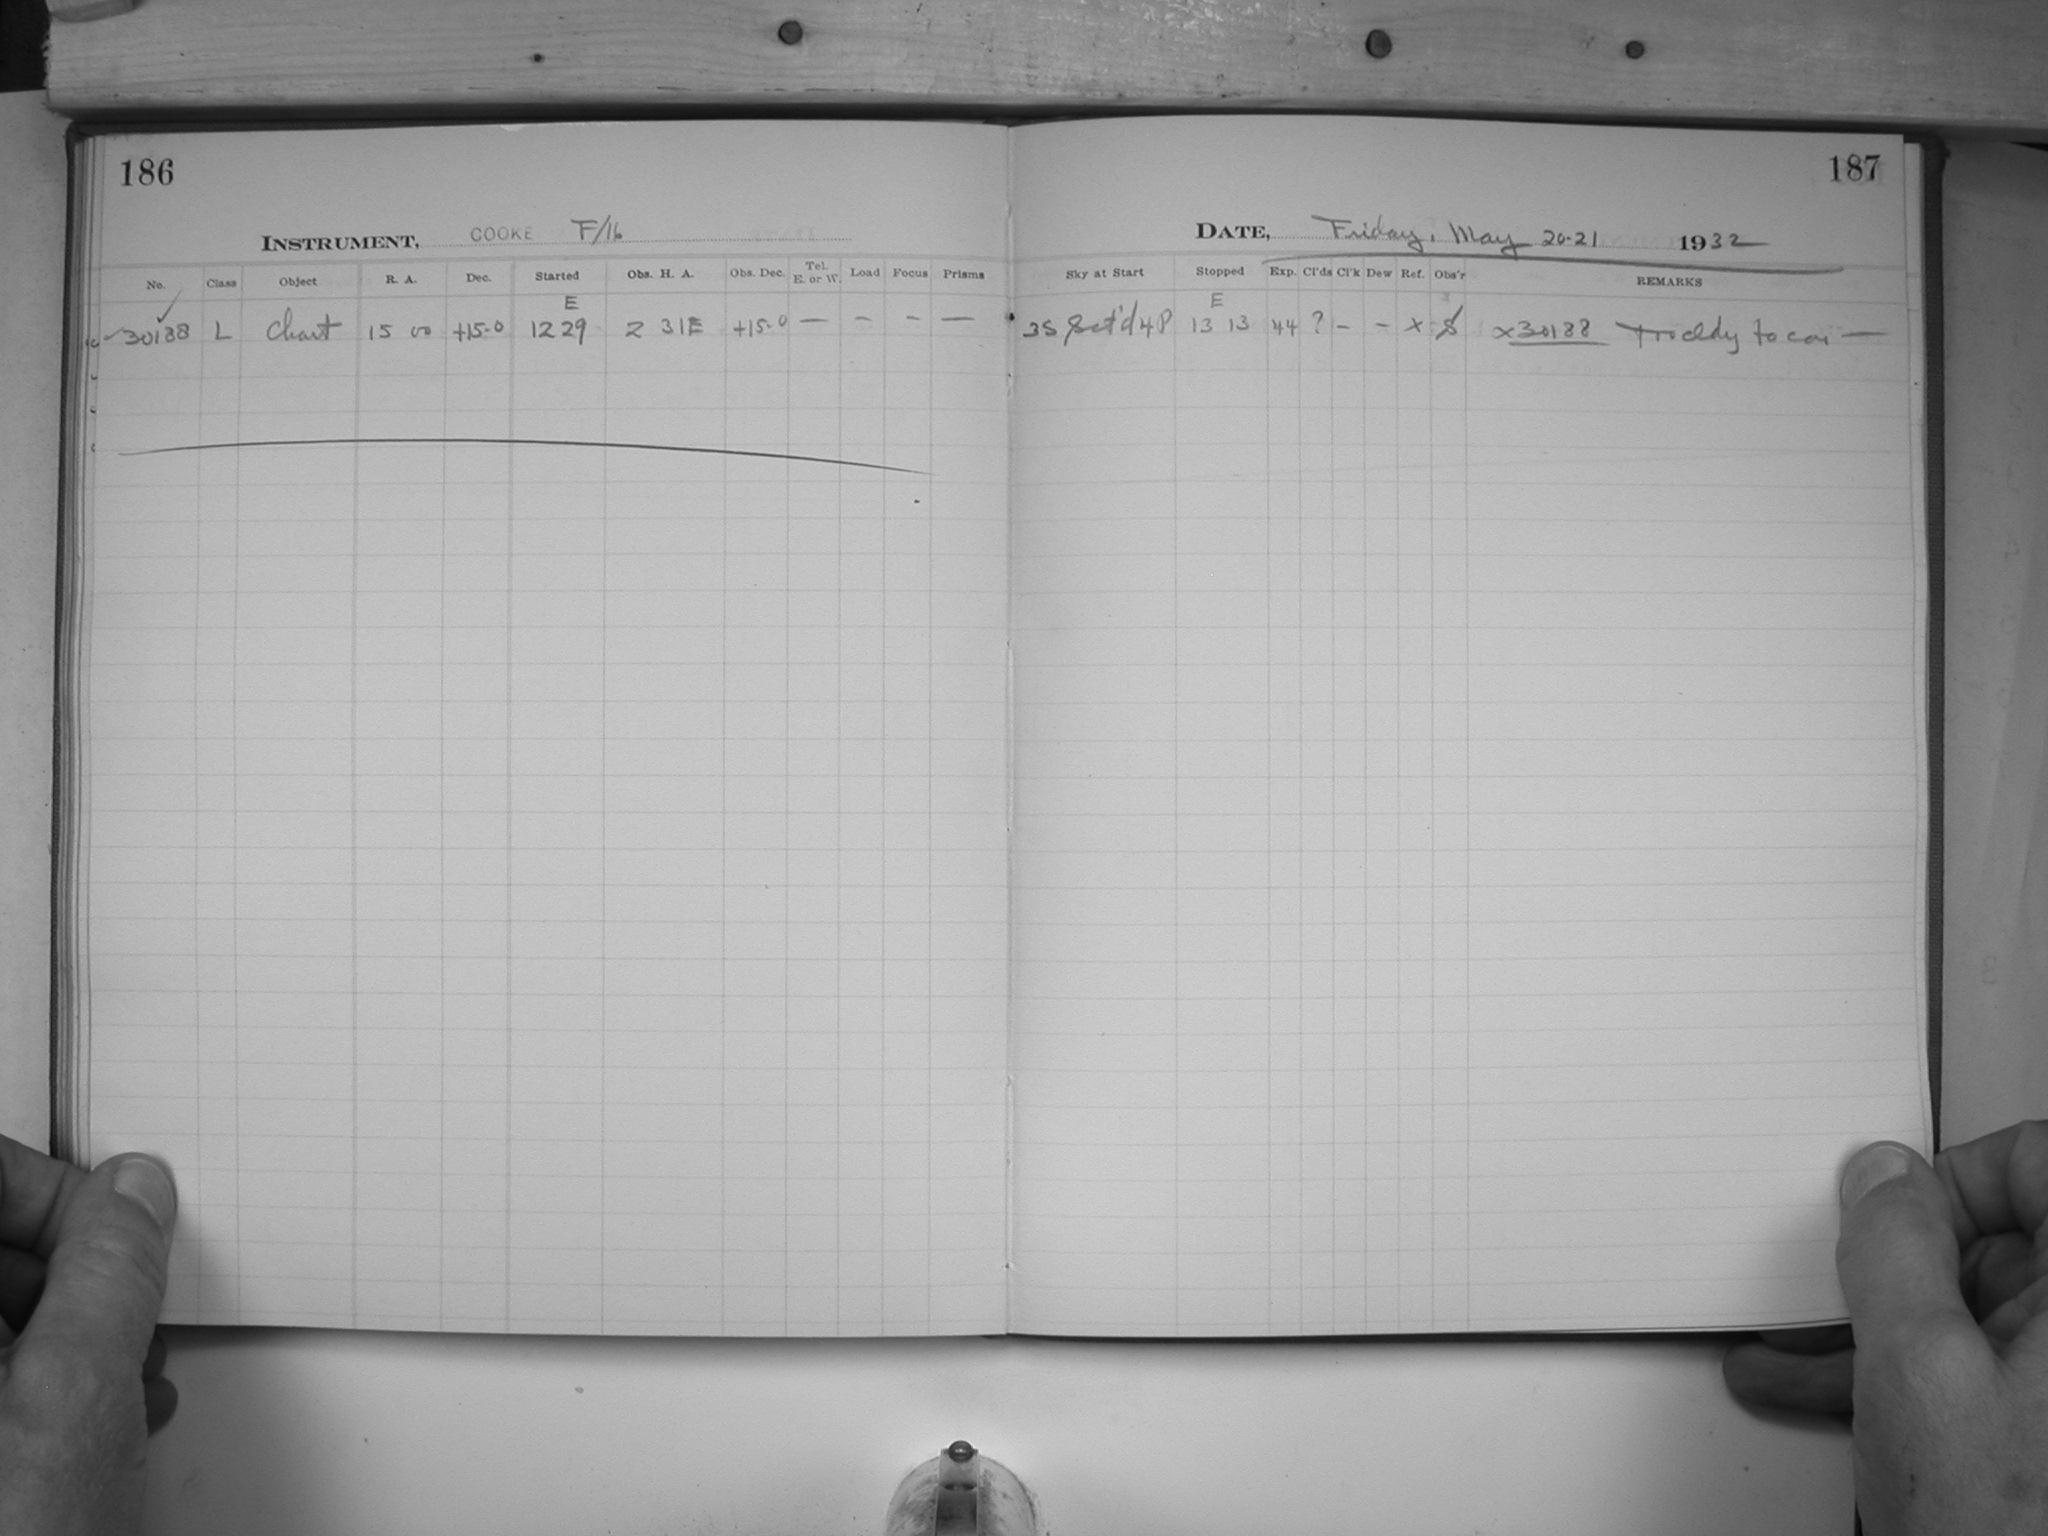 186
187
INSTRUMENT, COOKE F/16
DATE, Friday, May 20-21 1932
No. Class Object R. A. Dec. Started Obs. H. A. Obs. Dec. Tel. E. or W. Load Focus Prisms
Sky at Start Stopped Exp. Cl'ds Cl'k Dew Ref. Obs'r REMARKS
E
E
30188 L Chart 15 00 +15.0 12 29 2 31E +15.0 — – – —
3S Sct'd 4P 13 13 44 ? – – x S x30188 to